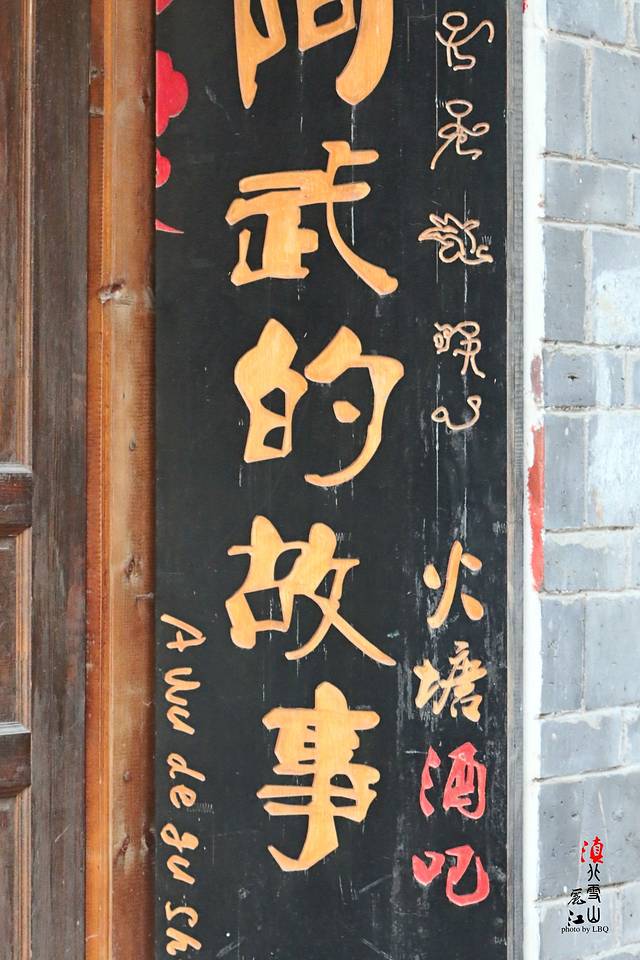 阿武的故事
火塘酒吧
A Wu de gu sh
滇北雪山
麗江
photo by LBQ